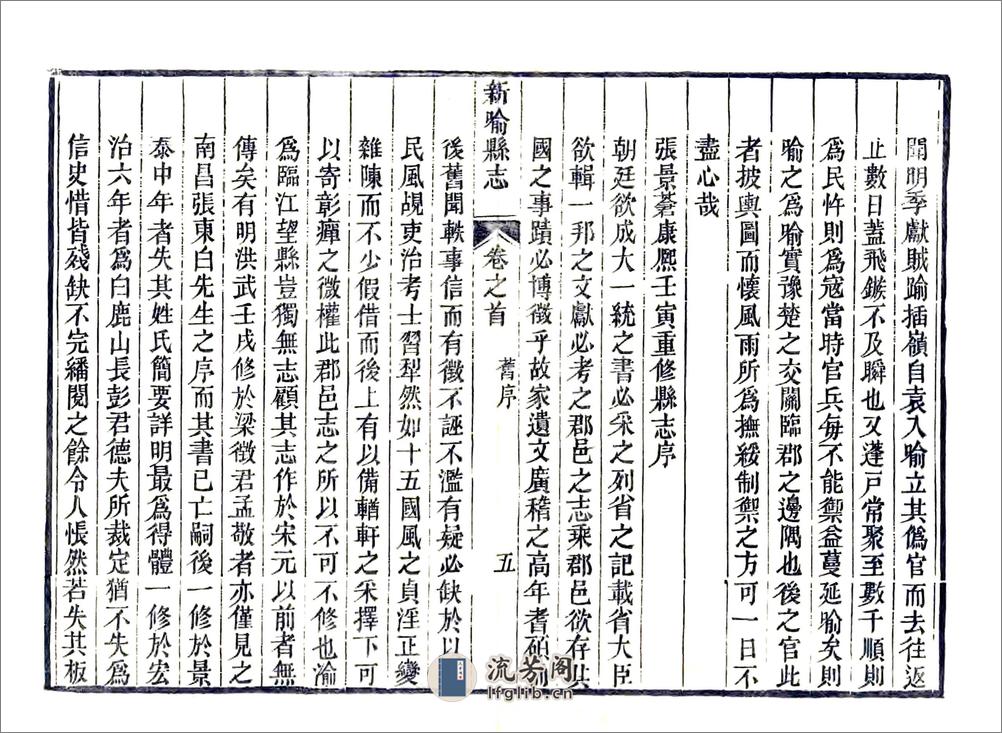 聞明季獻賊踰插嶺自袁入喻立其僞官而去往返
止數日蓋飛鏃不及瞬也又蓬戸常聚至數千順則
爲民忤則爲寇當時官兵每不能禦益蔓延喻矣則
喻之爲喻實豫楚之交關臨郡之邊隅也後之官此
者披輿圖而懷風雨所爲撫綏制禦之方可一日不
盡心哉
張景蒼康熈壬寅重修縣志序
朝廷欲成大一統之書必采之列省之記載省大臣
欲輯一邦之文獻必考之郡邑之志乘郡邑欲存其
國之事蹟必博徵乎故家遺文廣稽之高年耆碩
新喻縣志
卷之首
舊序
五
後舊聞軼事信而有徵不誣不濫有疑必缺於以
民風覘吏治考士習犁然如十五國風之貞淫正變
雜陳而不少假借而後上有以備輶軒之采擇下可
以寄彰癉之微權此郡邑志之所以不可不修也渝
爲臨江望縣豈獨無志顧其志作於宋元以前者無
傳矣有明洪武壬戌修於梁徵君孟敬者亦僅見之
南昌張東白先生之序而其書已亡嗣後一修於景
泰中年者失其姓氏簡要詳明最爲得體一修於宏
治六年者爲白鹿山長彭君德夫所裁定猶不失爲
信史惜皆殘缺不完繙閱之餘令人悵然若失其板
流芳阁
lfglib.cn